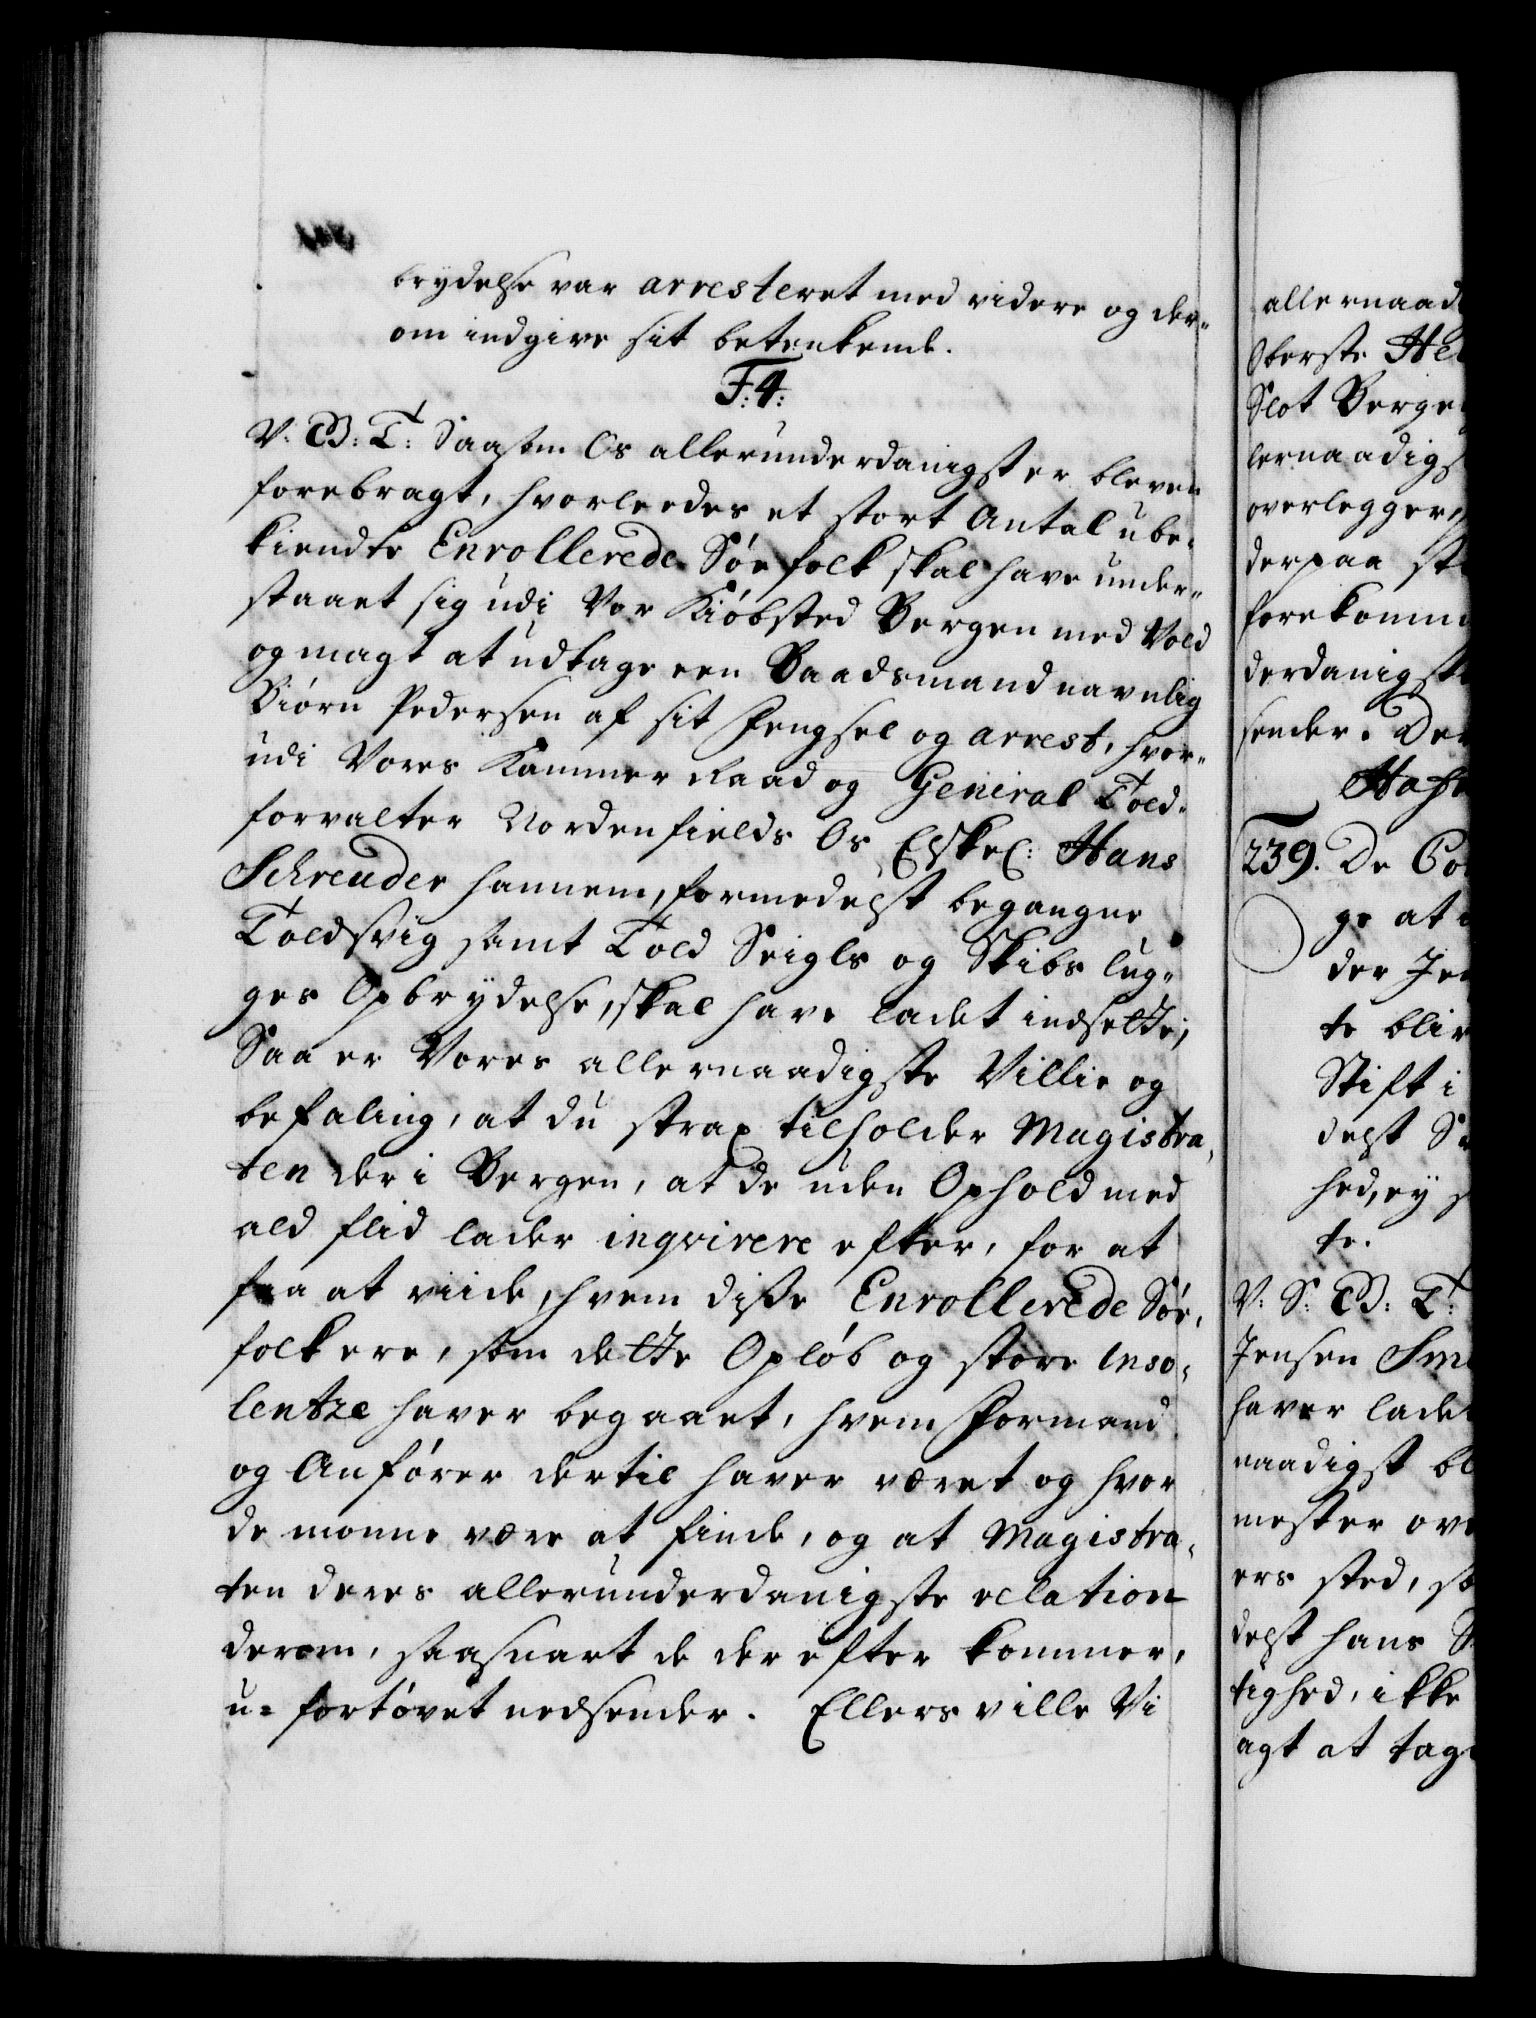 brydelse var arresteret med videre og der-
om indgive sit betenkende.
F: 4:
V: G: T: Saasom Os allerunderdanigst er bleven
forebragt, hvorleedes et stort Antal ube-
kiendte Enrollerede Søe folk skal have under-
staaet sig udi Vor Kiøbsted Bergen med Vold
og magt at udtage een Baadsmand navnlig
Biørn Pedersen af sit Fengsel og arrest, hvor-
udi Vores Kammer Raad og General Told-
forvalter Nordenfields Os Elskel: Hans
Schreuder hannem, formedelst begangne
Toldsvig samt Told Seigls og Skibs lug-
ges Opbrydelse, skal have ladet indsette;
Saa er Vores allernaadigste Villie og
befaling, at du strax tilholder Magistra-
ten der i Bergen, at de uden Ophold med
ald flid lader inqvirere efter, for at
faa at viide, hvem disse Enrollerede Søe-
folk ere, som dette Opløb og store Inso-
lentze haver begaaet, hvem Formand
og Anfører dertil haver været og hvor
de monne være at finde, og at Magistra-
ten deres allerunderdanigste relation
derom, saasnart de der efter kommer,
u-fortøvet nedsender. Ellers ville Vi
allernaad
Oberste He
Slot Berge
lernaadigs
overlegger
derpaa st
forekomm
derdanigst
sender. De
Hafn
239. De Co
ge at
der Je
te bliv
Stift i
delst S
hed, ey s
te.
V: S: G: T:
Jensen Sm
haver lade
naadigst bl
mester ov
ers sted, s
delst hans S
tighed, ikke
agt at tag